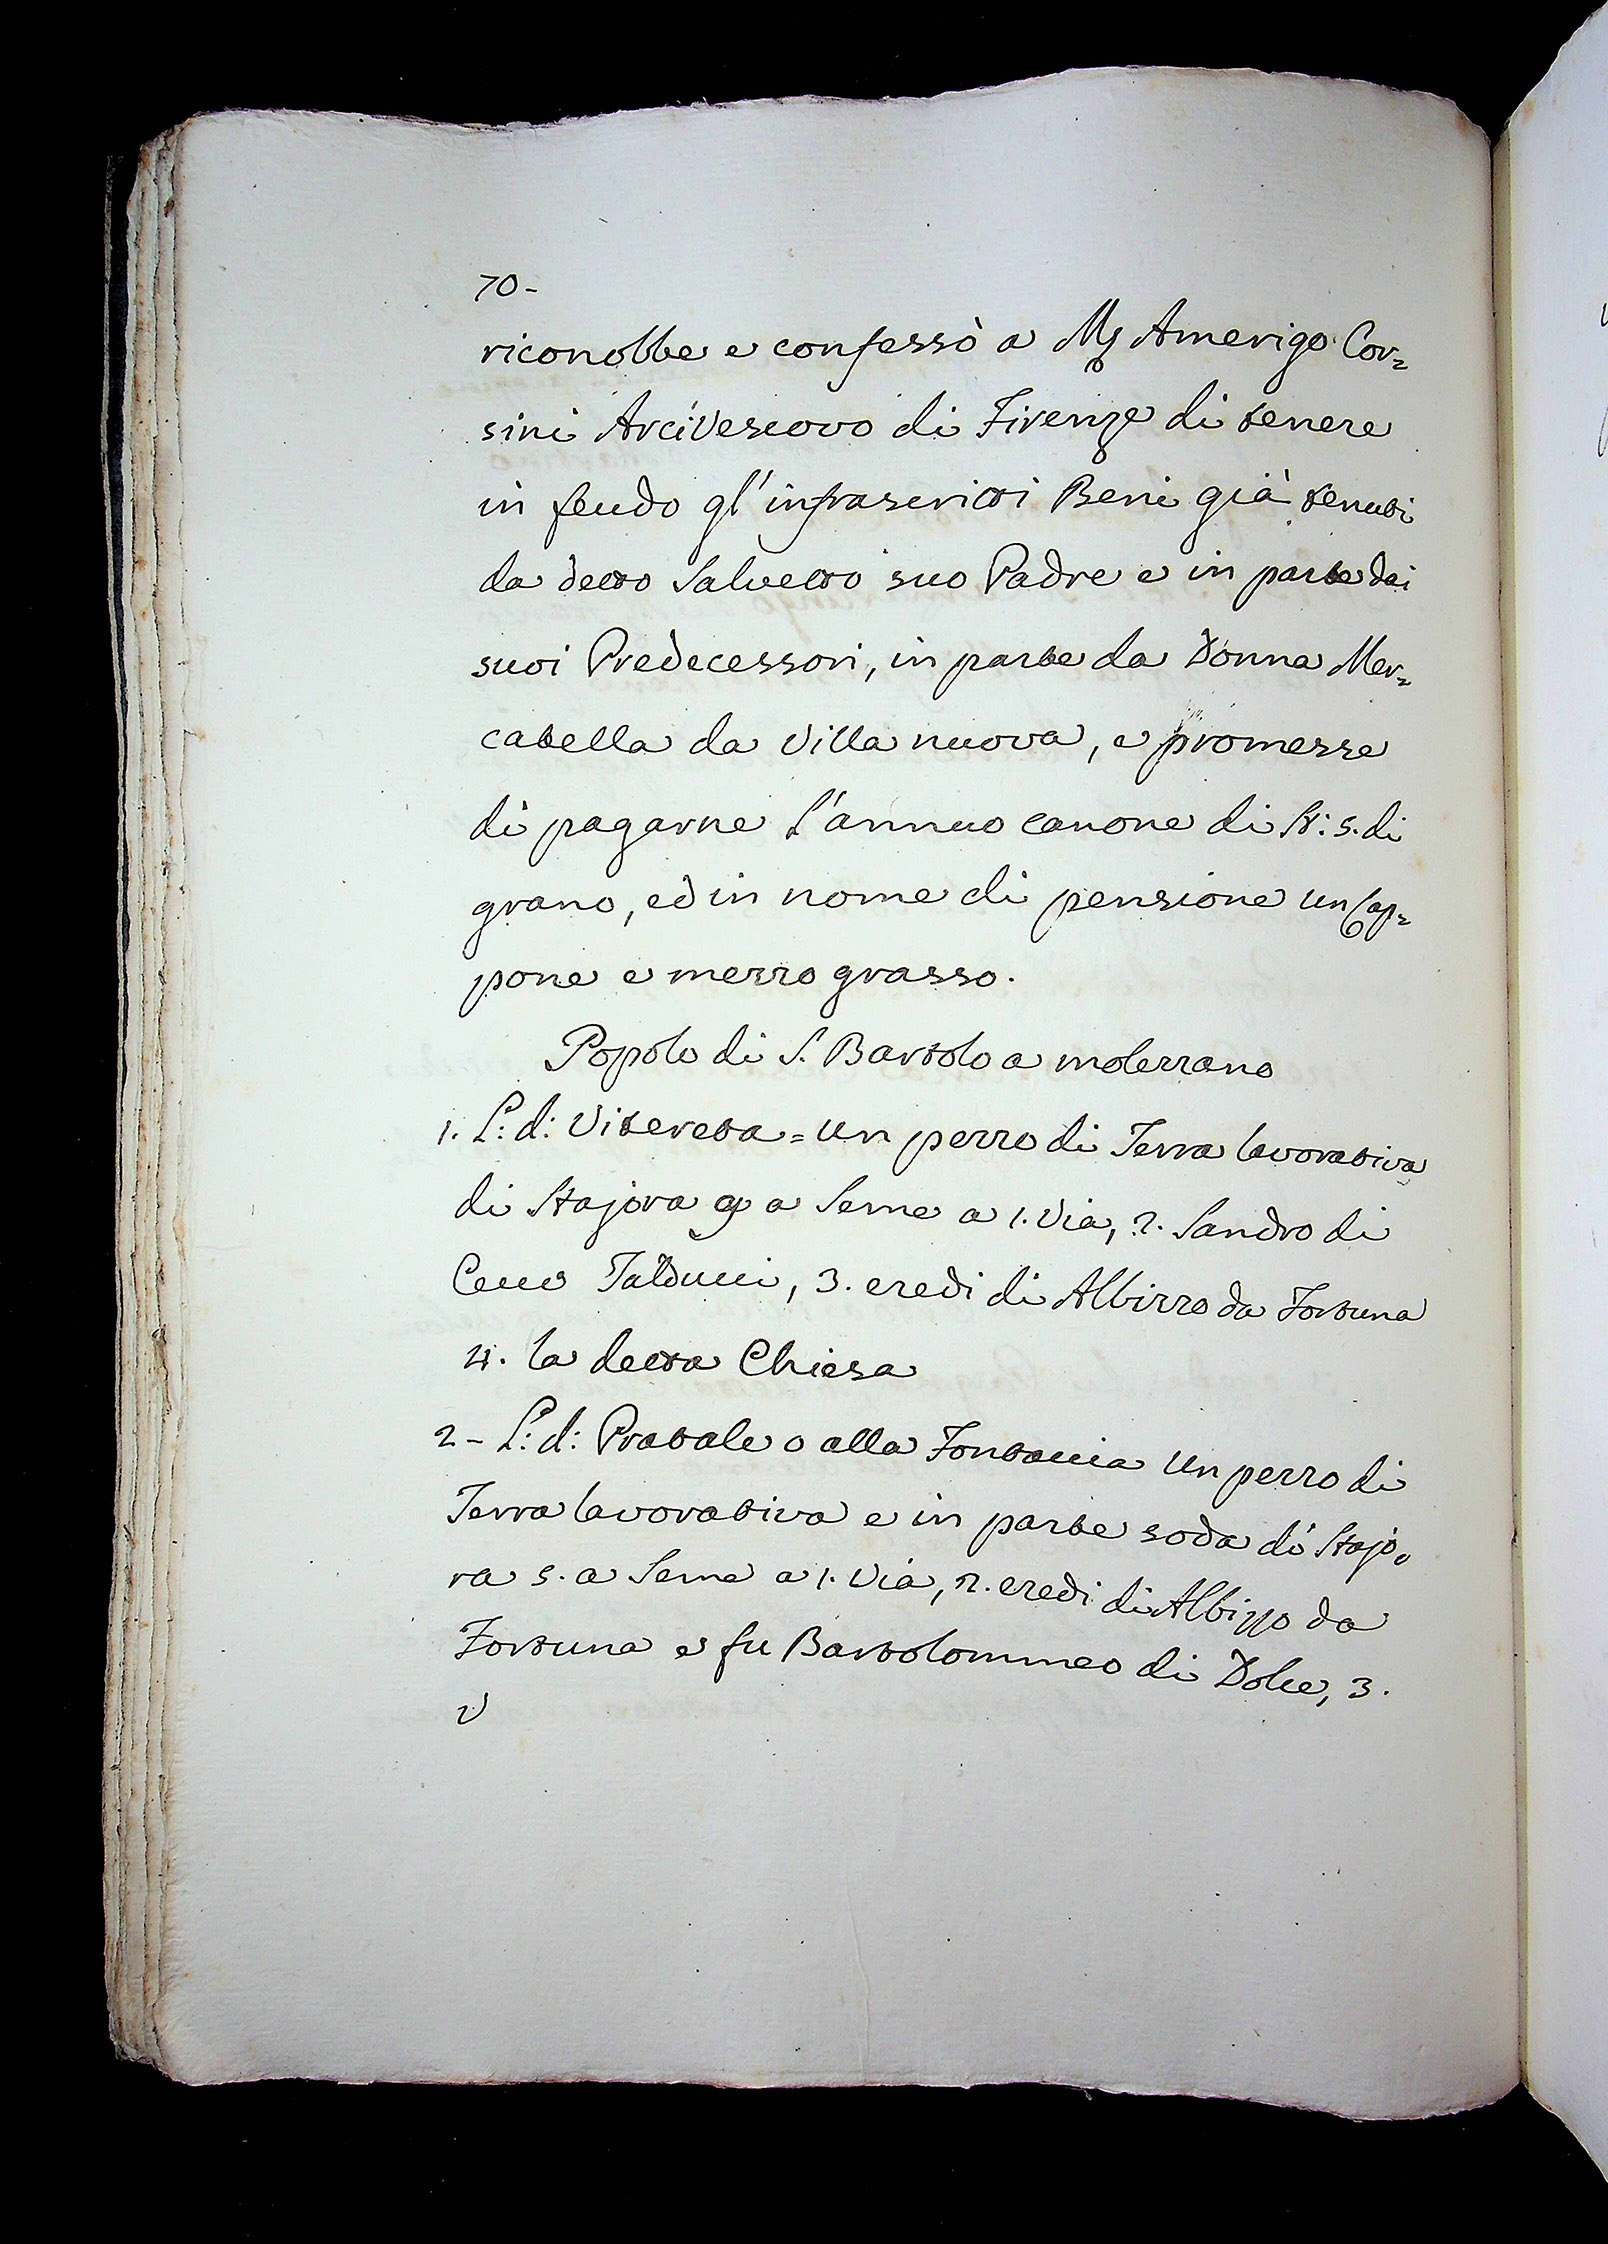 70-
riconobbe e confessò a Mg Amerigo Cor=
sini Arcivescovo di Firenze di tenere
in feudo gl'infrascritti Beni già tenuti
da detto Salvetto suo Padre e in parte dai
suoi Predecessori, in parte da Donna Mer=
catella da Villa nuova, e promesse
di pagarne l'annuo canone di St: 5. di
grano, ed in nome di pensione un Cap=
pone e mezzo grasso.
Popolo di S. Bartolo a molezzano
1. L: d: Vitereta = un pezzo di Terra lavorativa
di Stajora 9 a Seme a 1. Via, 2. Sandro di
Cecco Talducci, 3. eredi di Albizzo da Fortuna
4. la detta Chiesa
2- L: d: Pratale o alla Fontaccia un pezzo di
Terra lavorativa e in parte soda di Stajo=
ra 5. a Seme a 1. Via, 2. eredi di Albizzo da
Fortuna e fu Bartolommeo di Dolce, 3.